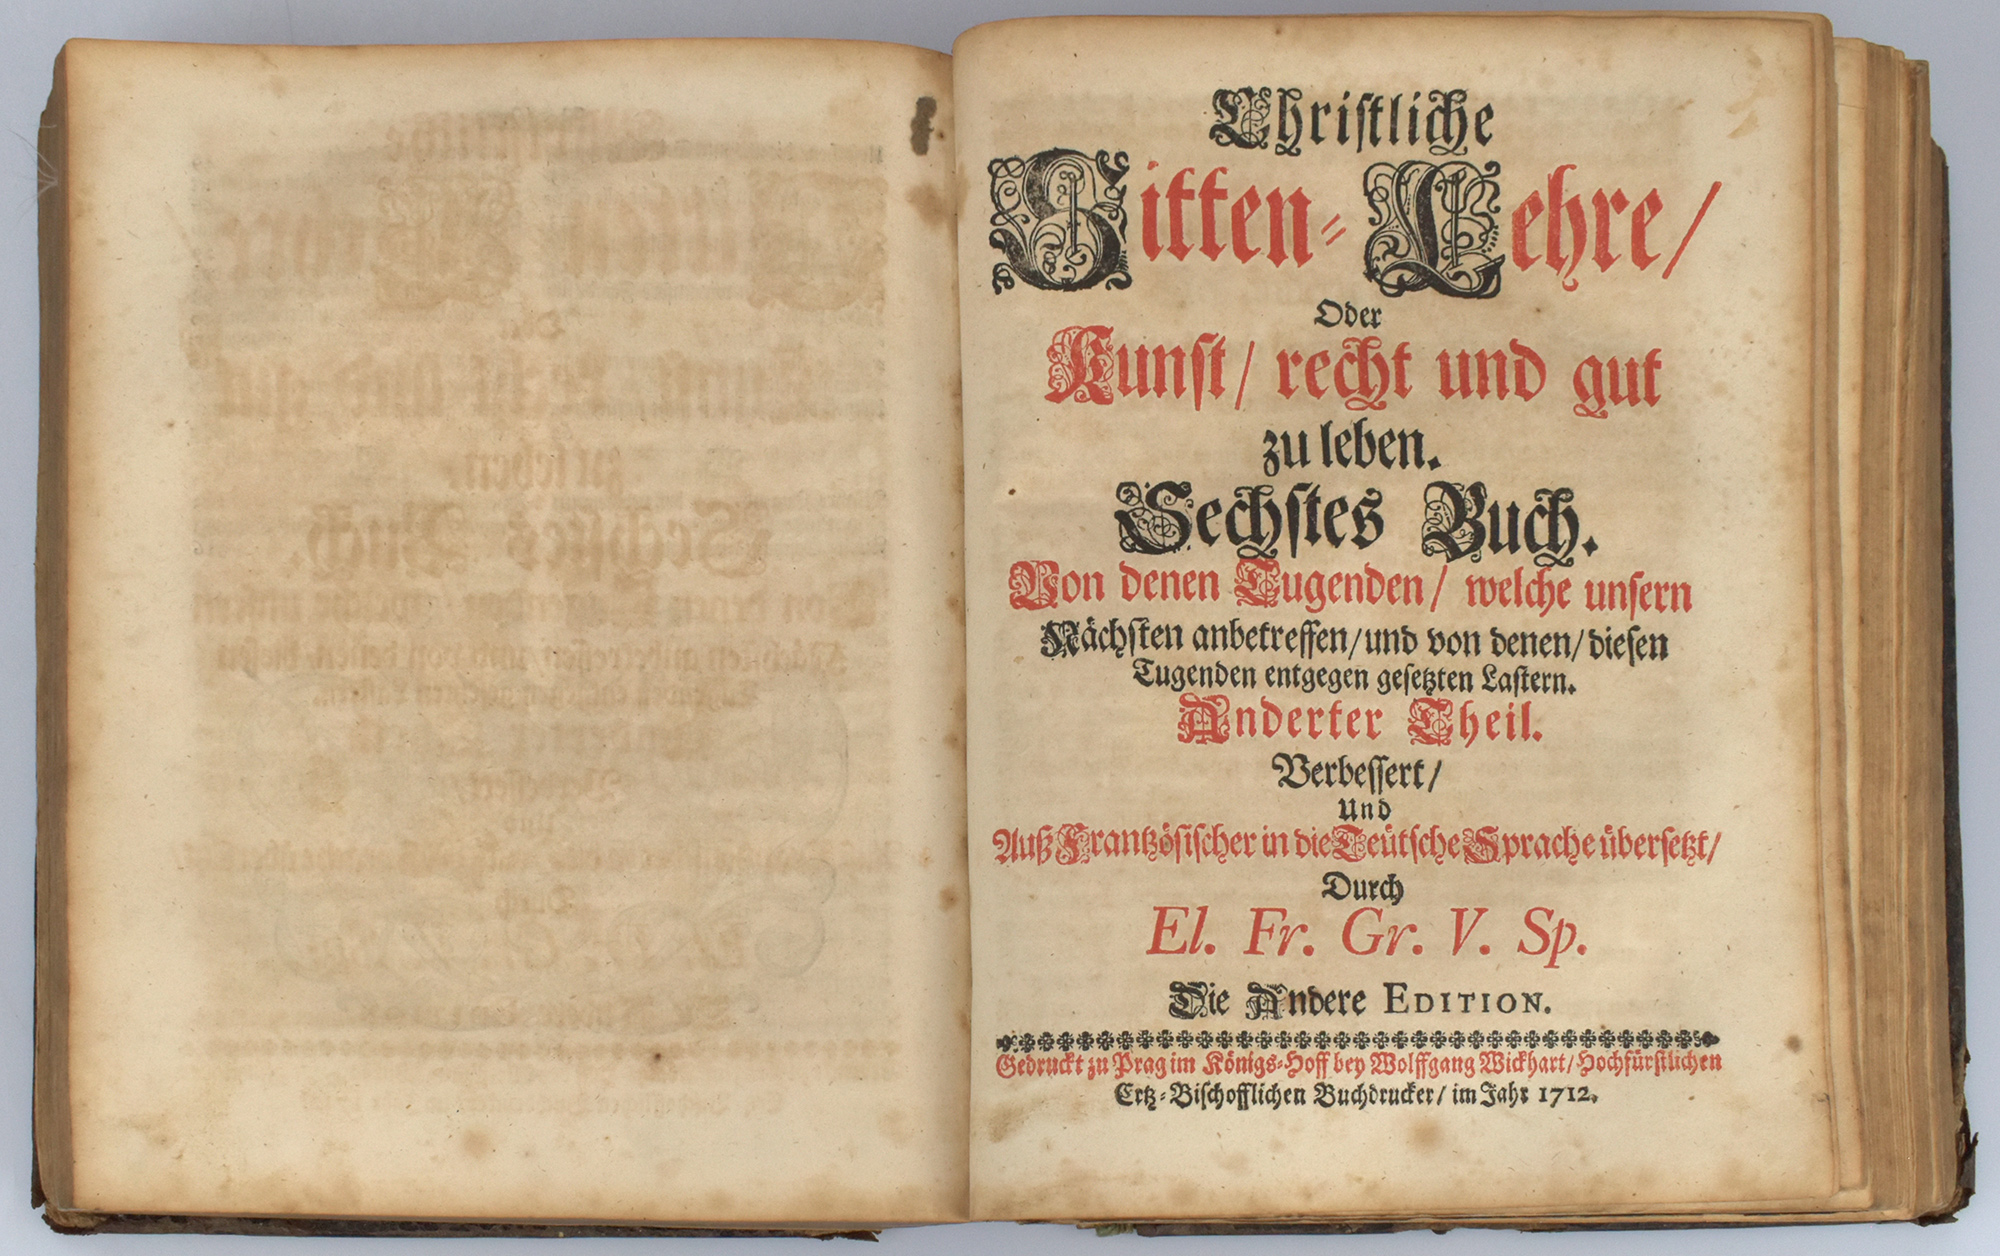 Christliche
Sitten-Lehre/
Oder
Kunst/ recht und gut
zu leben.
Sechstes Buch.
Von denen Tugenden/ welche unsern
Nächsten anbetreffen/und von denen/diesen
Tugenden entgegen gesetzten Lastern.
Anderter Theil.
Verbessert/
Und
Auß Frantzösischer in die Teütsche Sprache übersetzt/
Durch
El. Fr. Gr. V. Sp.
Die Andere EDITION.
Gedruckt zu Prag im Königs-Hoff bey Wolffgang Wickhart/Hochfürstlichen
Ertz-Bischofflichen Buchdrucker/ im Jahr 1712.